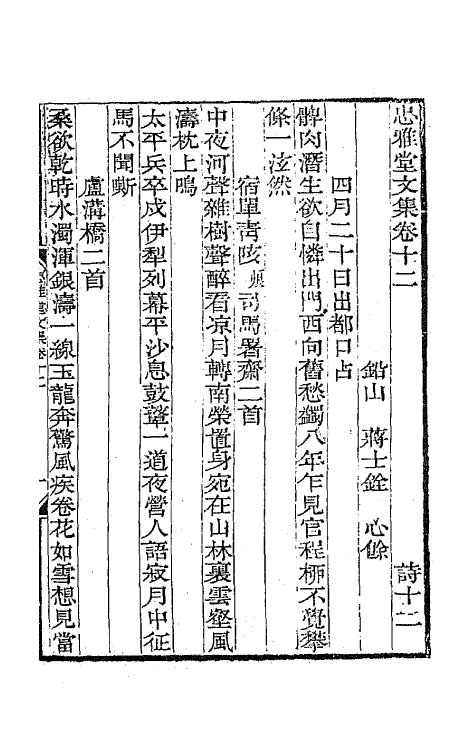 忠雅堂文集卷十二　詩十二
鉛山　蔣士銓　心餘
四月二十日出都口占
髀肉潛生欲自憐出門西向舊愁蠲八年乍見官程柳不覺攀
條一泫然
宿單靑司馬署齋二首
中夜河聲雜樹聲醉看凉月轉南榮置身宛在山林裏雲壑風
濤枕上鳴
太平兵卒戍伊犁列幕平沙息鼓鼙一道夜營人語寂月中征
馬不聞嘶
盧溝橋二首
桑欲乾時水濁渾銀濤一線玉龍奔驚風疾卷花如雪想見當